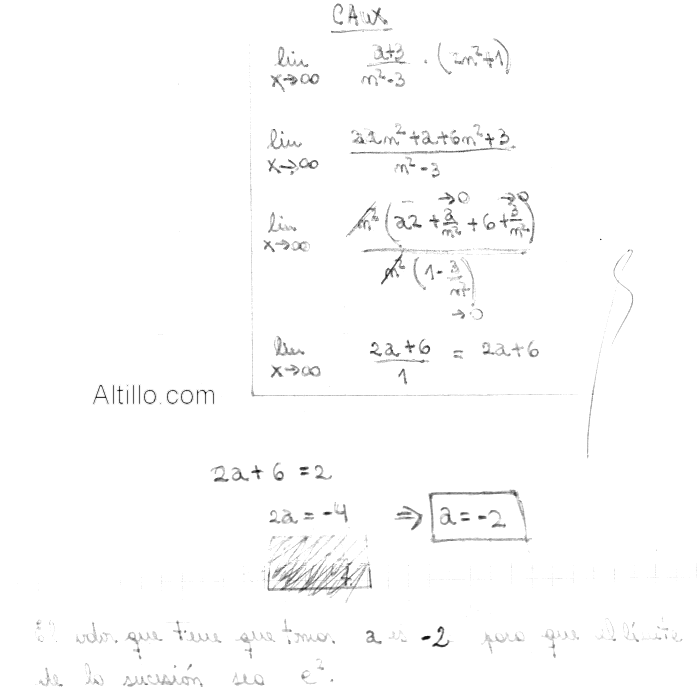 CAUX
lim x→∞ a+3/n²-3 · (2n²+1)
lim x→∞ a2n²+a+6n²+3/n²-3
lim x→∞ n²(a2+a/n²+6+3/n²)/n²(1-3/n²)
→0 →0
→0
lim x→∞ 2a+6/1 = 2a+6
Altillo.com
2a+6=2
2a=-4 ⇒ a=-2
El valor que tiene que tomar a es -2 para que el límite
de la sucesión sea e².